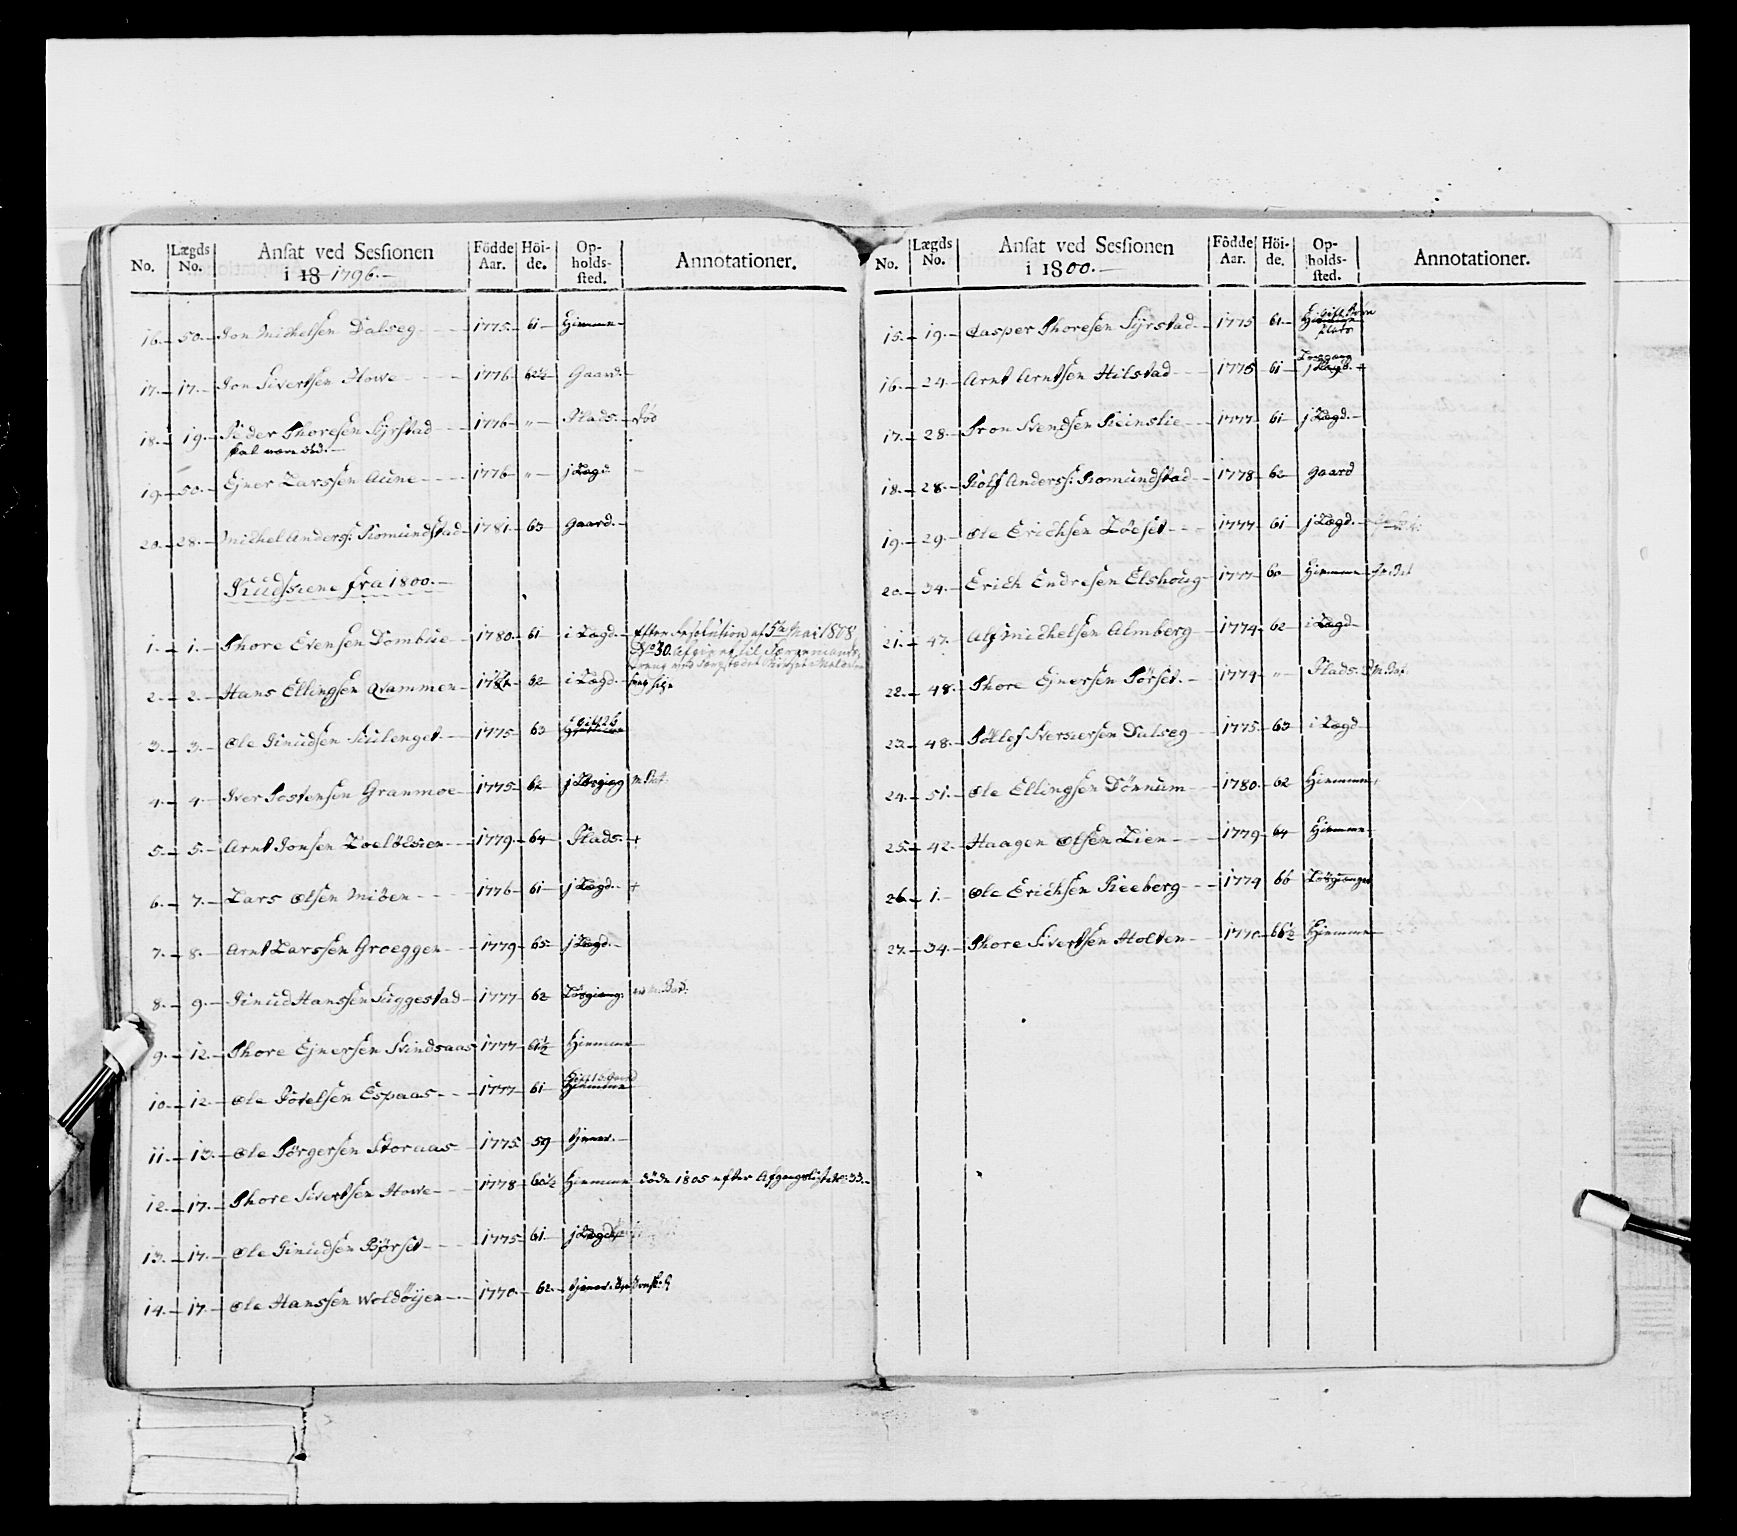 No. Lægds No. Ansat ved Sessionen i 18 1796.- Födde Aar. Höi-de. Op-holds-sted. Annotationer.
16. 50. Jon Michelsen Dalseg 1775 61 Hiemme
17. 17. Jon Sivertsen Howe 1776 62½ Gaard.
18. 19. Peder Thoresen Syrstad 1776 " Plads. död
skal være död.
19. 50. Ejner Larssen Aune 1776 " j Lægd
20. 28. Michel Anders: Romundstad 1781. 63 Gaard.
fra 1800.
1. 1. Thore Evensen Domblie 1780. 61 i Lægd. Efter Resolution af 5te Mai 1808
No 30. Afgiven til
2. 2. Hans Ellingsen Qvammen 62 i Lægd.
3. 3. Ole Knudsen 1775 63
4. 4. Iver Jostensen Granmoe 1775 62
5. 5. Arnt Jonsen 1779. 64 Plads. +
6. 7. Lars Olsen Miöen 1776 61 j Lægd. +
7. 8. Arnt Larssen Groeggen 1779 65 j Lægd.
8. 9. Knud Hanssen Suggestad 1777 62 Lösgiæng:
9. 12. Thore Ejnersen Svindsaas 1777 61½ Hiemme
10. 12. Ole Espaas 1777 61 Hiemme
11. 13. Ole Börgersen Storaas 1775 59 tjener.
12. 17. Thore Sivertsen Howe 1778 60½ Hiemme döde 1805 efter Afgangsliste No: 33.
13. 17. Ole Knudsen 1775 61 j Lægd
14. 17. Ole Hanssen Woldöijen 1770. 62. tjener.
No. Lægds No. Ansat ved Sessionen i 1800.- Födde Aar. Höi-de. Op-holds-sted. Annotationer.
15. 19. Casper Thoresen Syrstad 1775 61 Hiemme
16. 24. Arnt Arntsen Hilstad 1776 61 j Lægd. +
17. 28. Tron Svendsen 1777 61 j Lægd.
18. 28. Rolf Anderss: Romundstad 1778 62 gaard
19. 29. Ole Erichsen Löeset 1777 61 j Lægd.
20. 34. Erich Endresen Elshoug 1777 60 Hiemme
21. 47. Alf Michelsen Almberg 1774 62 i Lægd
22. 48. Thore Ejnersen 1774 " Plads.
23. 48. Tollef Dalseg 1775. 63 i Lægd
24. 51. Ole Ellingsen Dönnum 1780. 62 Hiemme
25. 42. Haagen Olsen Lien 1779 64 Hiemme
26. 1. Ole Erichsen Reeberg 1774 66 Lösgiænger
27. 34. Thore Sivertsen Holten 1770 66½ Hiemme